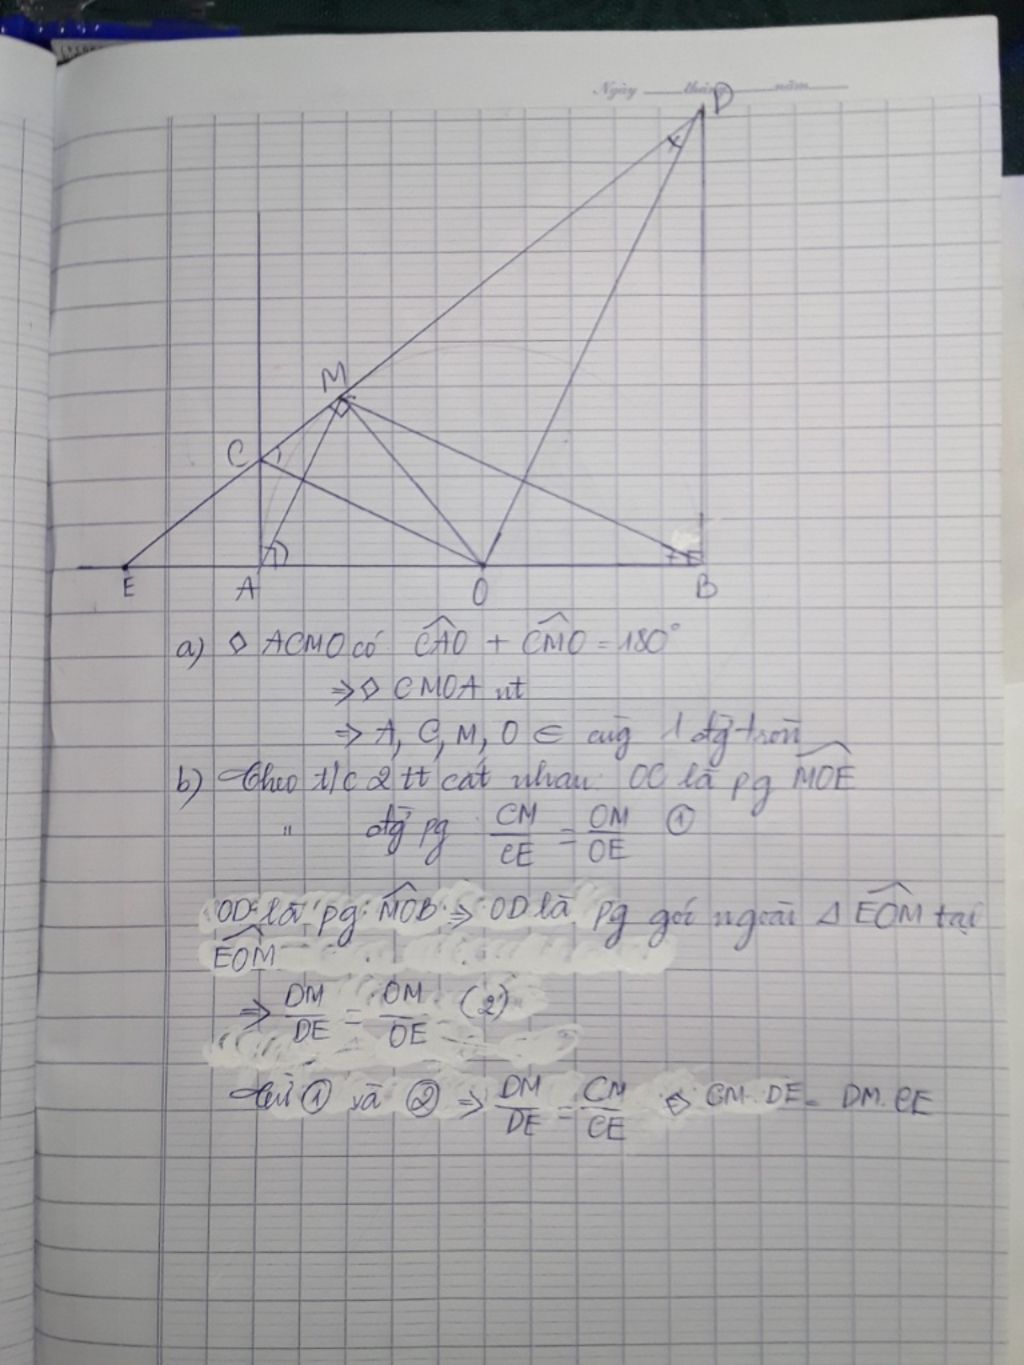 Ngày tháng năm
D
M
C
E A O B
a) ◊ ACMO có CÂO + CM̂O = 180°
⇒ ◊ CMOA nt
⇒ A, C, M, O ∈ cùg 1 đg tròn
b) Theo t/c 2 tt cắt nhau: OC là pg MÔE
" đg pg CM/CE = OM/OE ①
OD là pg MÔB ⇒ OD là pg góc ngoài Δ EÔM tại
EÔM
⇒ DM/DE = OM/OE (2)
Từ ① và ② ⇒ DM/DE = CM/CE ⇔ CM. DE = DM. CE